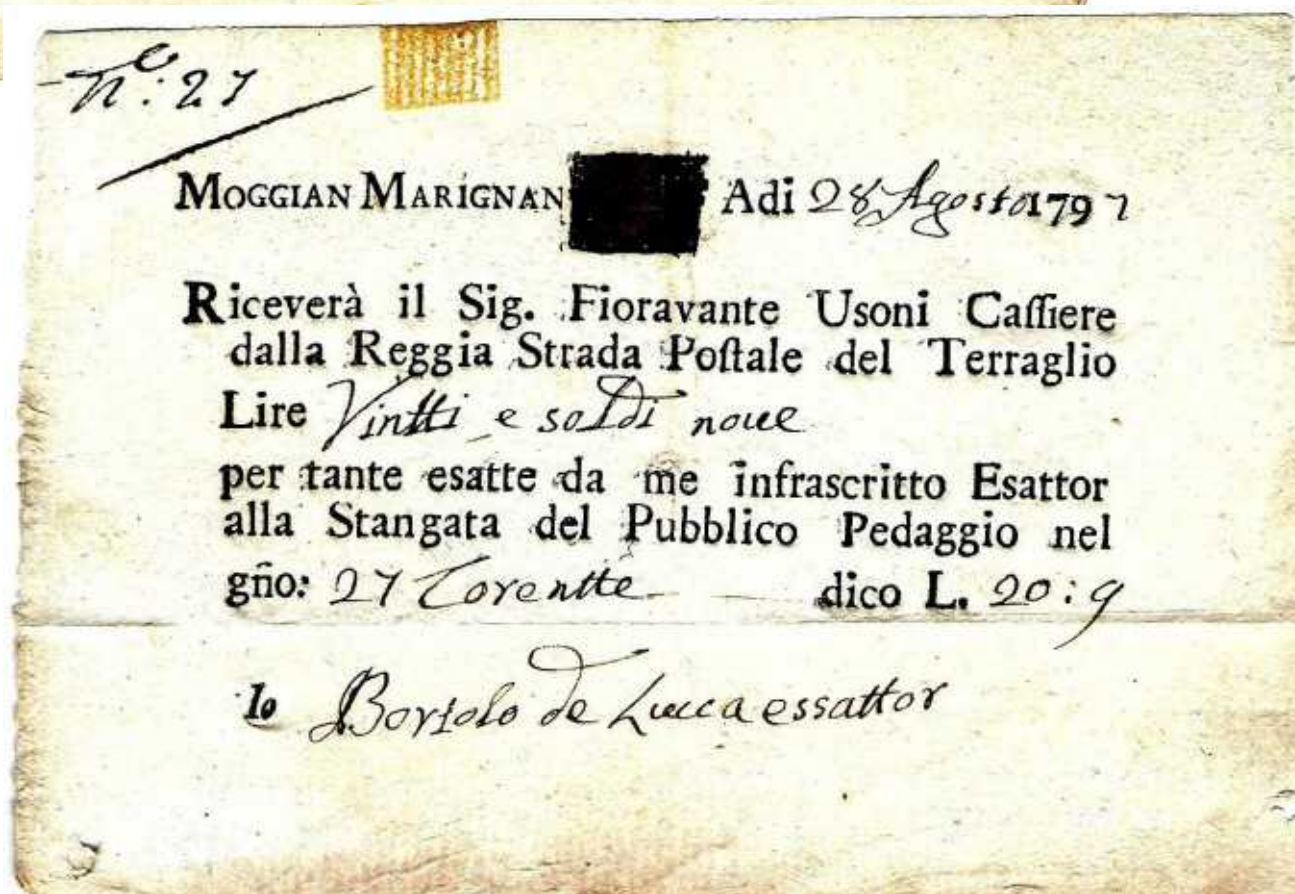 N.º: 27
MOGGIAN MARIGNAN Adi 28 Agosto 1797
Riceverà il Sig. Fioravante Usoni Caſſiere
dalla Reggia Strada Poſtale del Terraglio
Lire Vintti e soldi noue
per tante esatte da me infrascritto Esattor
alla Stangata del Pubblico Pedaggio nel
gño: 27 Corentte dico L. 20:9
Io Bortolo de Lucca essattor